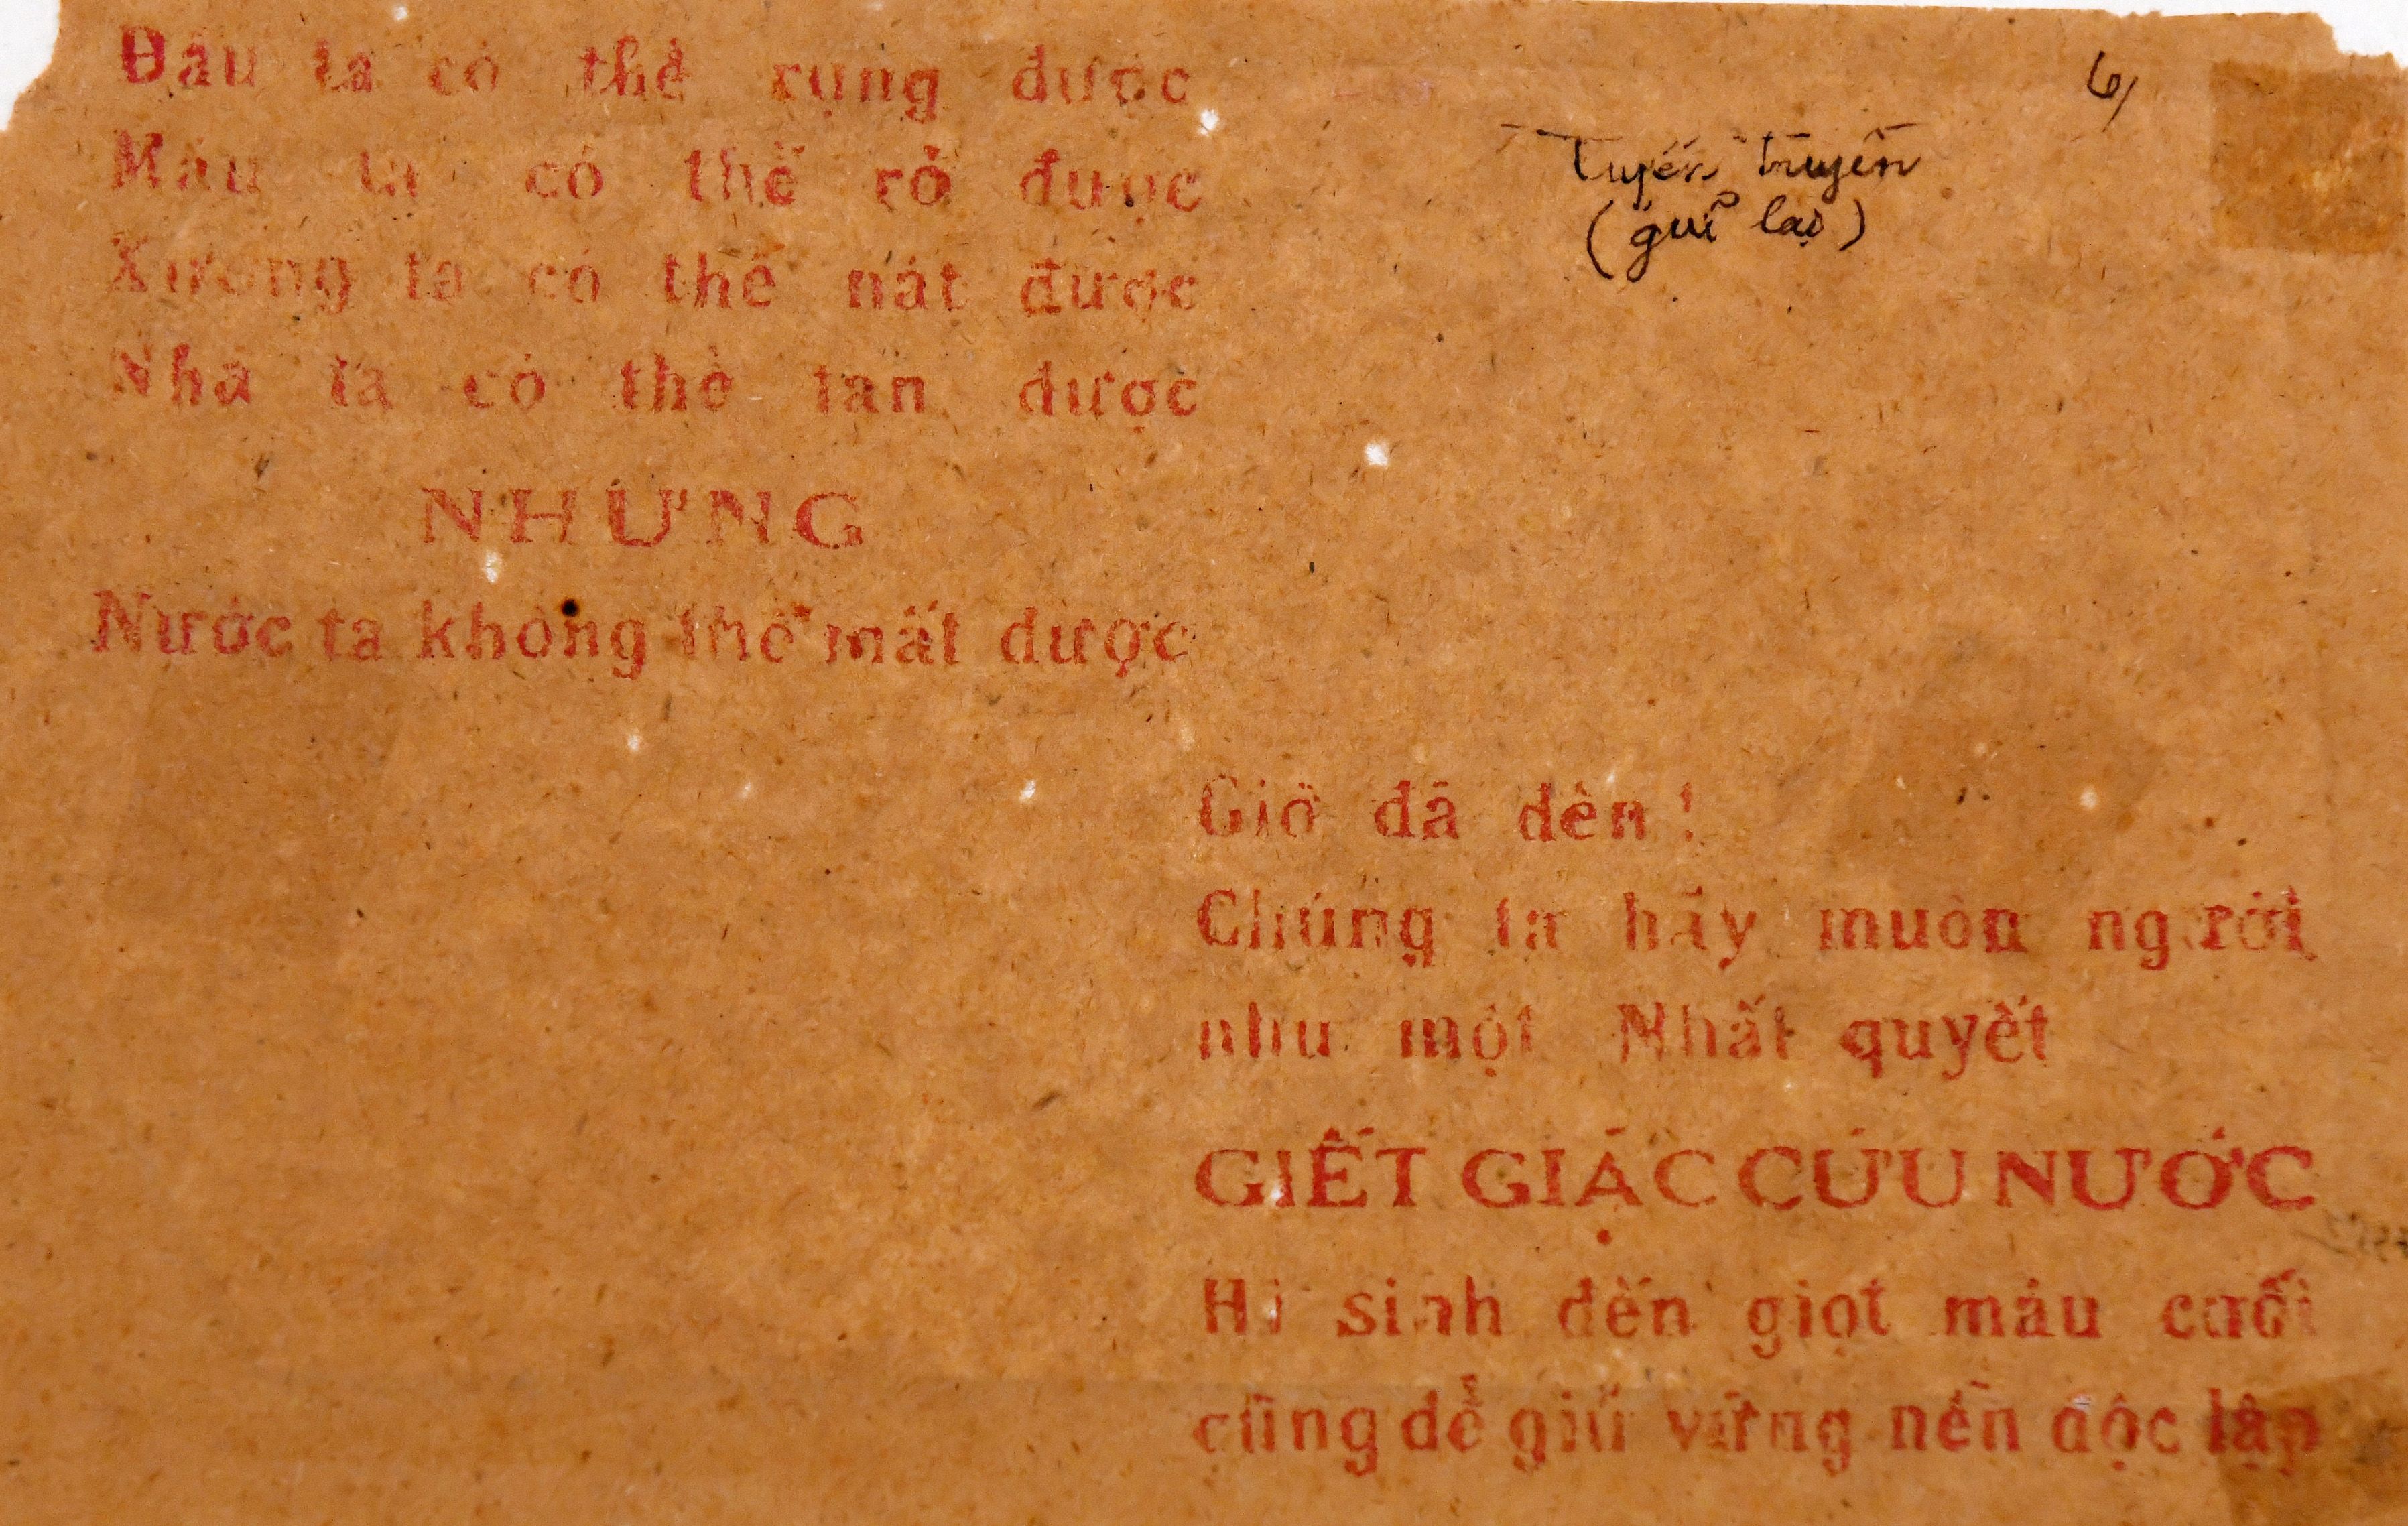 Đầu ta có thể rụng được
Máu ta có thể rỏ được
Xương ta có thể nát được
Nhà ta có thể tan được
NHƯNG
Nước ta không thể mất được
6/
Tuyên truyền
(gửi lại)
Giờ đã đến !
Chúng ta hãy muôn người
như một Nhất quyết
GIẾT GIẶC CỨU NƯỚC
Hi sinh đến giọt máu cuối
cùng để giữ vững nền độc lập